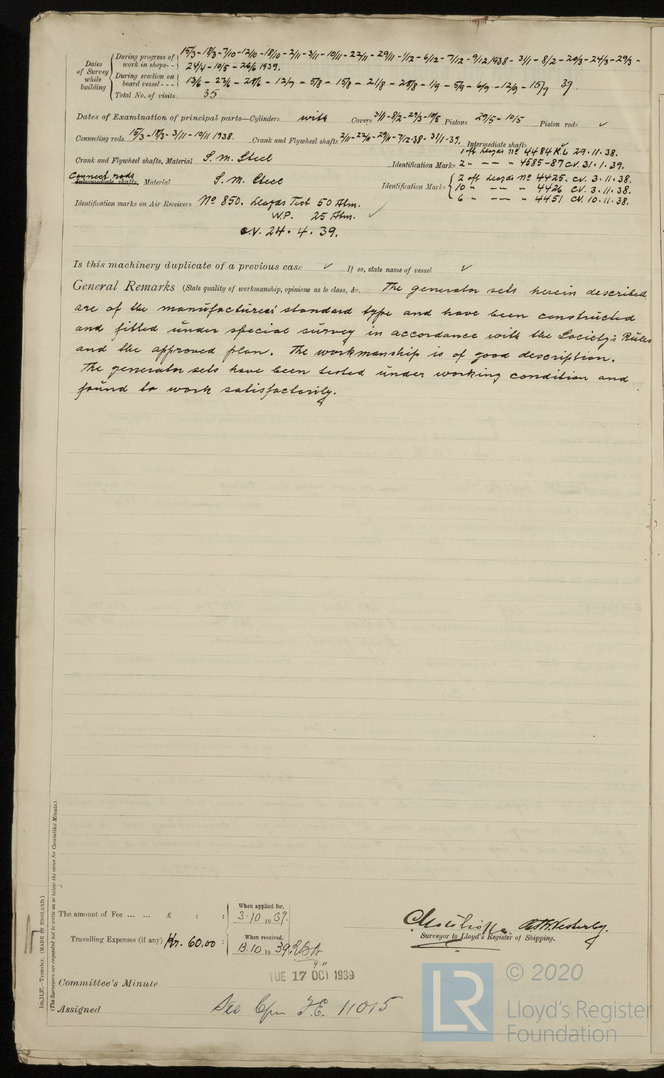 Dates of Survey while building
During progress of work in shops - - 15/3 - 18/3 - 7/10 - 12/10 - 18/10 - 2/11 - 3/11 - 10/11 - 22/11 - 29/11 - 1/12 - 6/12 - 7/12 - 9/12 1938 - 3/11 - 8/2 - 20/3 - 24/3 - 29/3 -
24/4 - 10/5 - 26/6 1939.
During erection on board vessel - - - 13/6 - 23/6 - 28/6 - 12/7 - 5/8 - 15/8 - 21/8 - 28/8 - 1/9 - 5/9 - 6/9 - 12/9 - 15/9 39.
Total No. of visits 35
Dates of Examination of principal parts—Cylinders with Covers 31/1 - 8/2 - 29/3 - 10/5 Pistons 29/5 - 10/5 Piston rods ✓
Connecting rods 15/3 - 18/3 - 3/11 - 10/11 1938. Crank and Flywheel shafts 2/11 - 22/11 - 29/11 - 7/12-38. 31/1-39. Intermediate shafts ✓
Crank and Flywheel shafts, Material S. M. Steel Identification Marks 1 off Lloyds No 4484 29.11.38.
2 - - - - 4585-87 CN. 31.1.39.
Connect. rods
Intermediate shafts, Material S. M. Steel Identification Marks 2 off Lloyds No 4425. CN. 3.11.38.
10 - - - - 4426 CN. 3.11.38.
6 - - - - 4451 CN. 10.11.38.
Identification marks on Air Receivers No 850. Lloyds Test 50 Atm.
W.P. 25 Atm. ✓
CN. 24.4.39.
Is this machinery duplicate of a previous case ✓ If so, state name of vessel ✓
General Remarks (State quality of workmanship, opinions as to class, &c. The generator sets herein described
are of the manufacturers' standard type and have been constructed
and fitted under special survey in accordance with the Society's Rules
and the approved plan. The workmanship is of good description.
The generator sets have been tested under working condition and
found to work satisfactorily.
1m,11,37.—Transfer. (MADE IN ENGLAND.)
(The Surveyors are requested not to write on or below the space for Committee Minute.)
The amount of Fee ... ... £ : : When applied for, 3.10.1939.
Travelling Expenses (if any) Kr. 60.00 : When received, 13.10.1939
Surveyor to Lloyd's Register of Shipping.
TUE 17 OCT 1939
Committee's Minute
Assigned See F.E. 11015
LR
© 2020
Lloyd's Register
Foundation